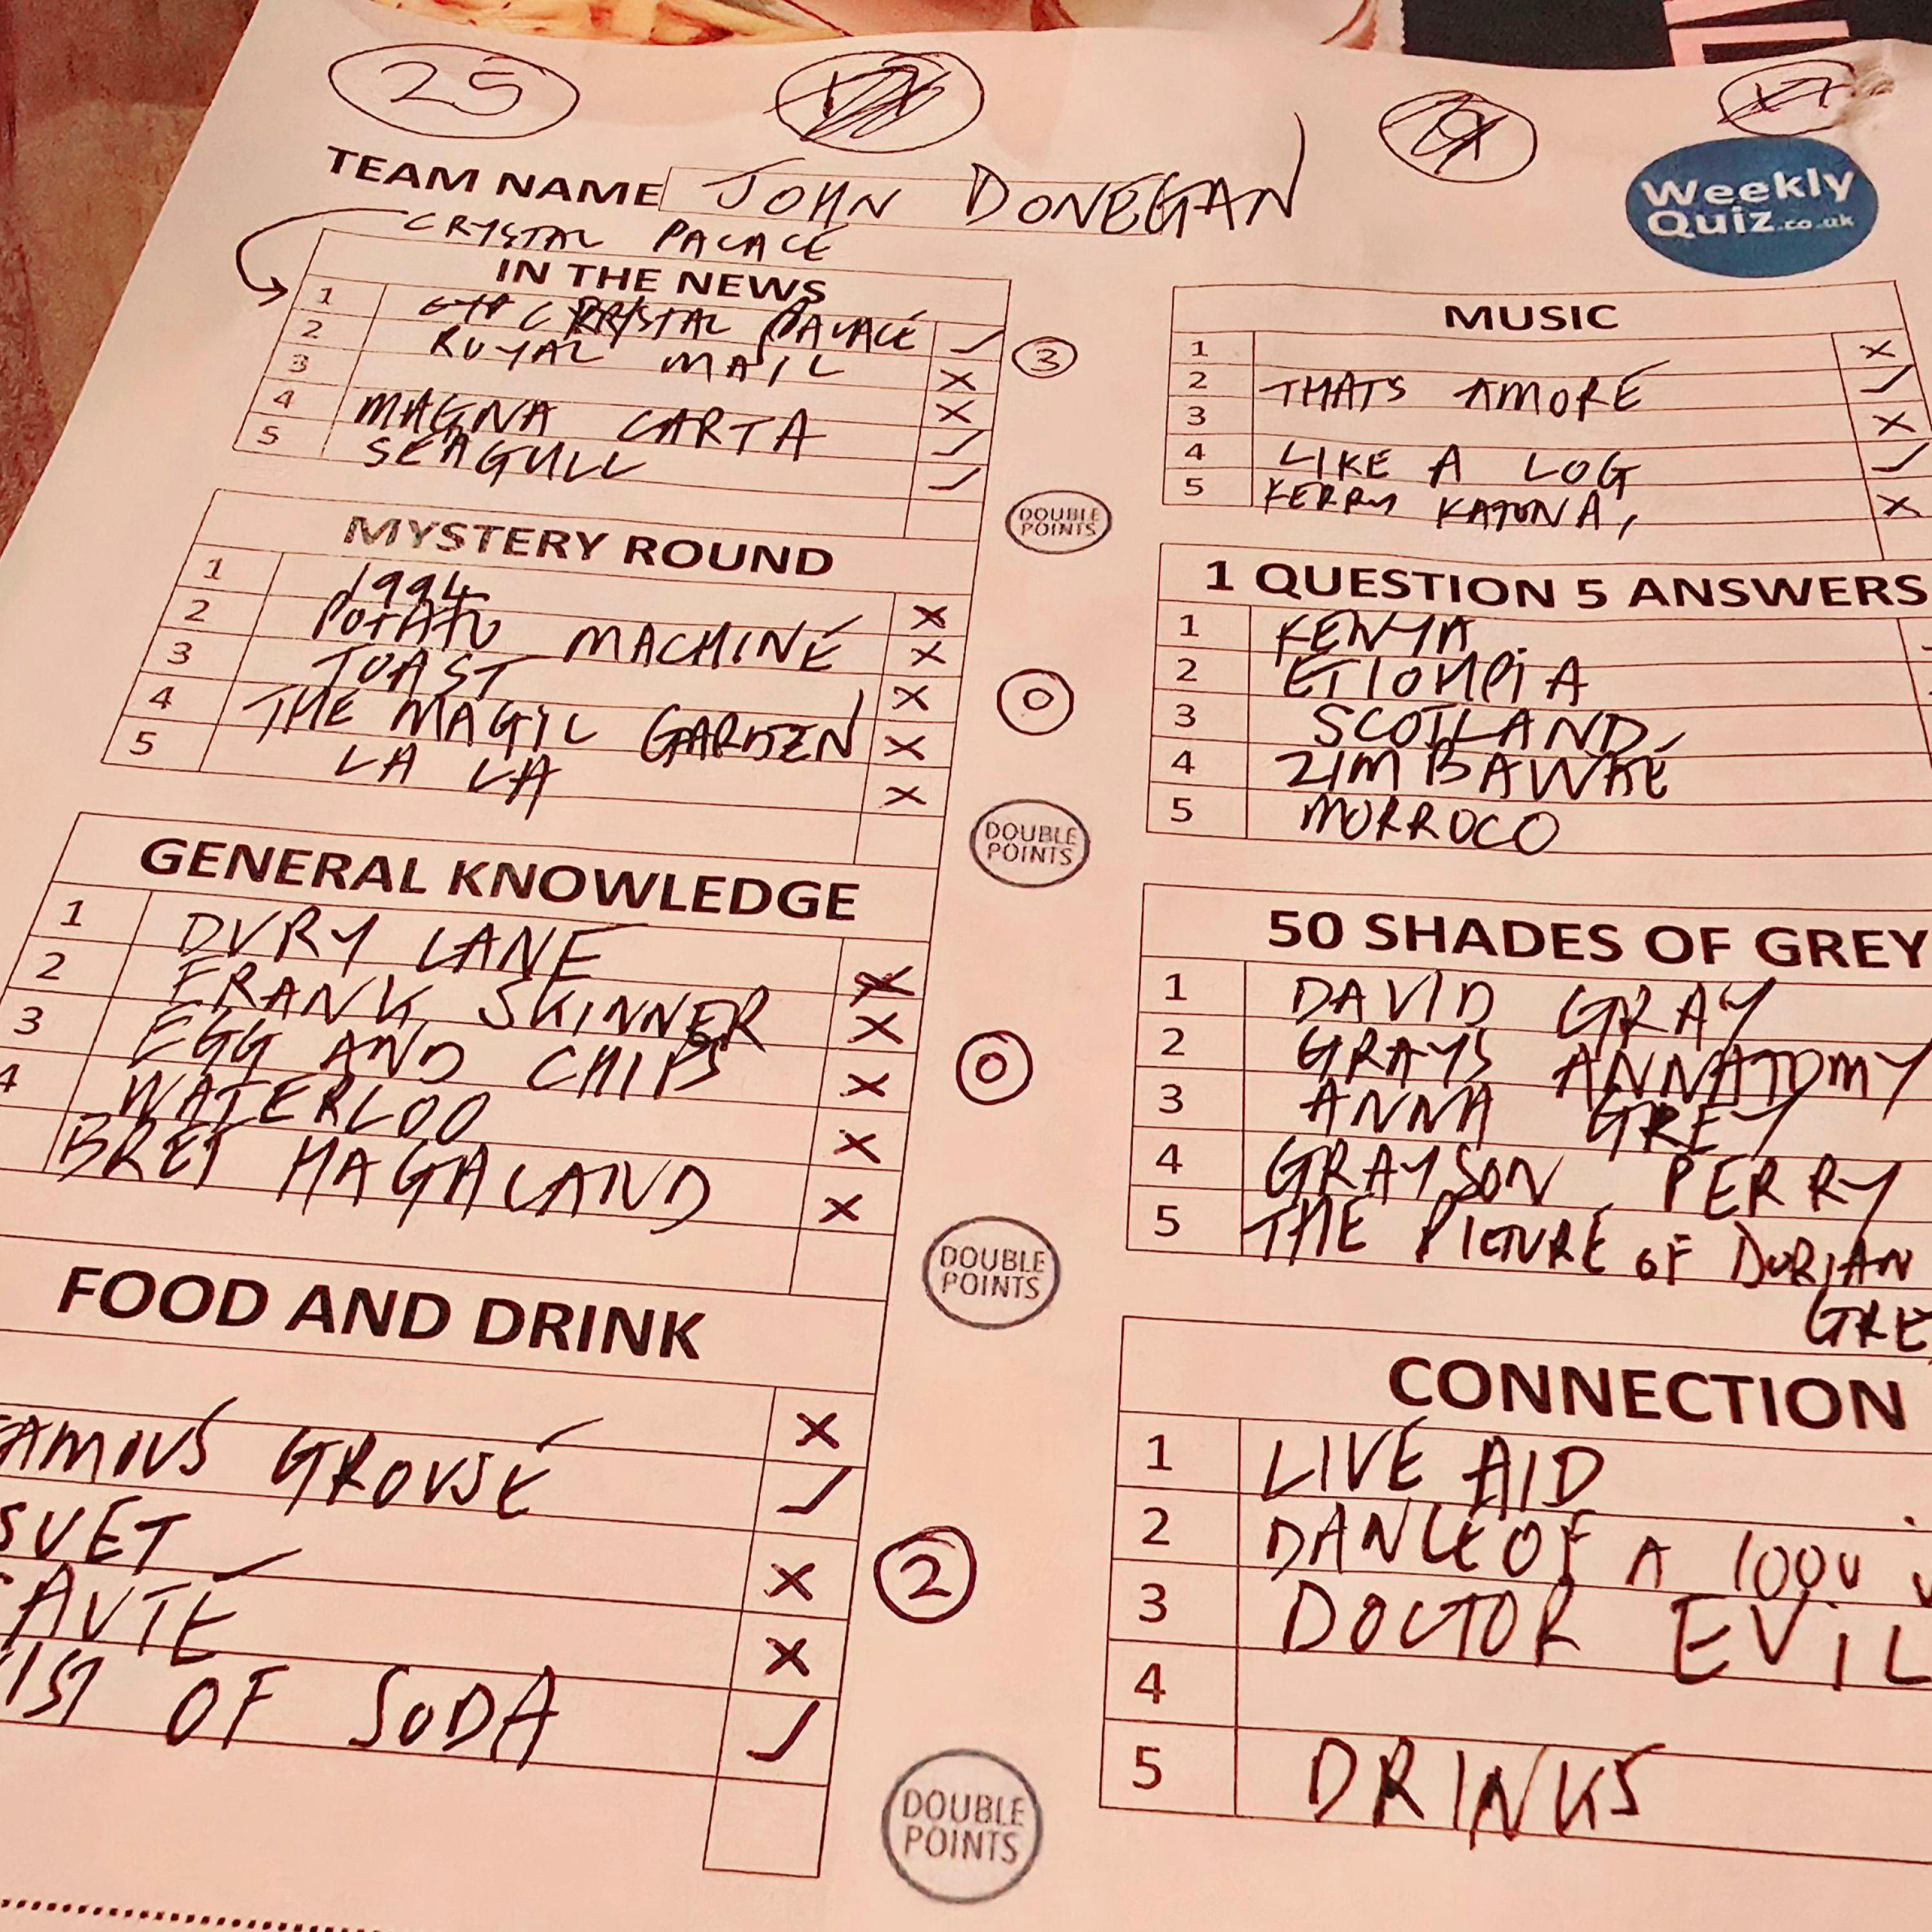 25
TEAM NAME JOHN DONEGAN
Weekly
Quiz.co.uk
CRYSTAL PALACE
IN THE NEWS
1 CRYSTAL PALACE
2 ROYAL MAIL
3
4 MAGNA CARTA
5 SEAGULL
3
DOUBLE
POINTS
MYSTERY ROUND
1 1994
2 POTATO MACHINE
3 TOAST
4 THE MAGIC GARDEN
5 LA LA
0
DOUBLE
POINTS
GENERAL KNOWLEDGE
1 DURY LANE
2 FRANK SKINNER
3 EGG AND CHIPS
4 WATERLOO
BRET HAGALAND
0
DOUBLE
POINTS
FOOD AND DRINK
AMOUS GROUSE
SUET
AUTE
IST OF SODA
2
DOUBLE
POINTS
MUSIC
1
2 THATS AMORE
3
4 LIKE A LOG
5 KERRY KATONA,
1 QUESTION 5 ANSWERS
1 KENYA
2 ETIOHPIA
3 SCOTLAND
4 ZIMBAWKE
5 MORROCO
50 SHADES OF GREY
1 DAVID GRAY
2 GRAYS ANNATOMY
3 ANNA GREY
4 GRAYSON PERRY
5 THE PICTURE OF DORIAN
GRE
CONNECTION
1 LIVE AID
2 DANCE OF A 1000
3 DOCTOR EVIL
4
5 DRINKS